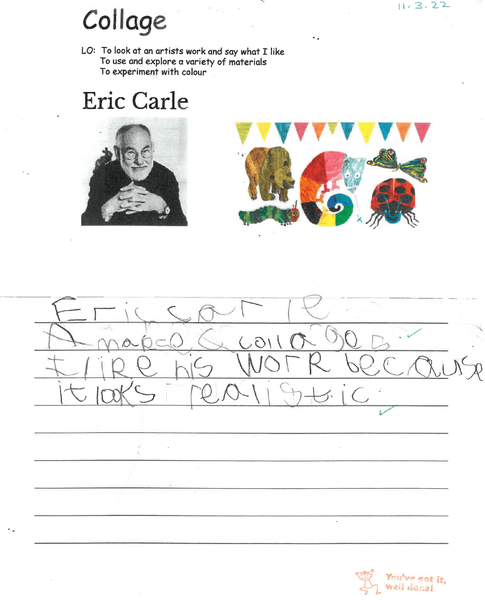 11.3.22
Collage
LO: To look at an artists work and say what I like
To use and explore a variety of materials
To experiment with colour
Eric Carle
Eric carle
collages
I like his work because
it looks realistic
You've got it,
well done!